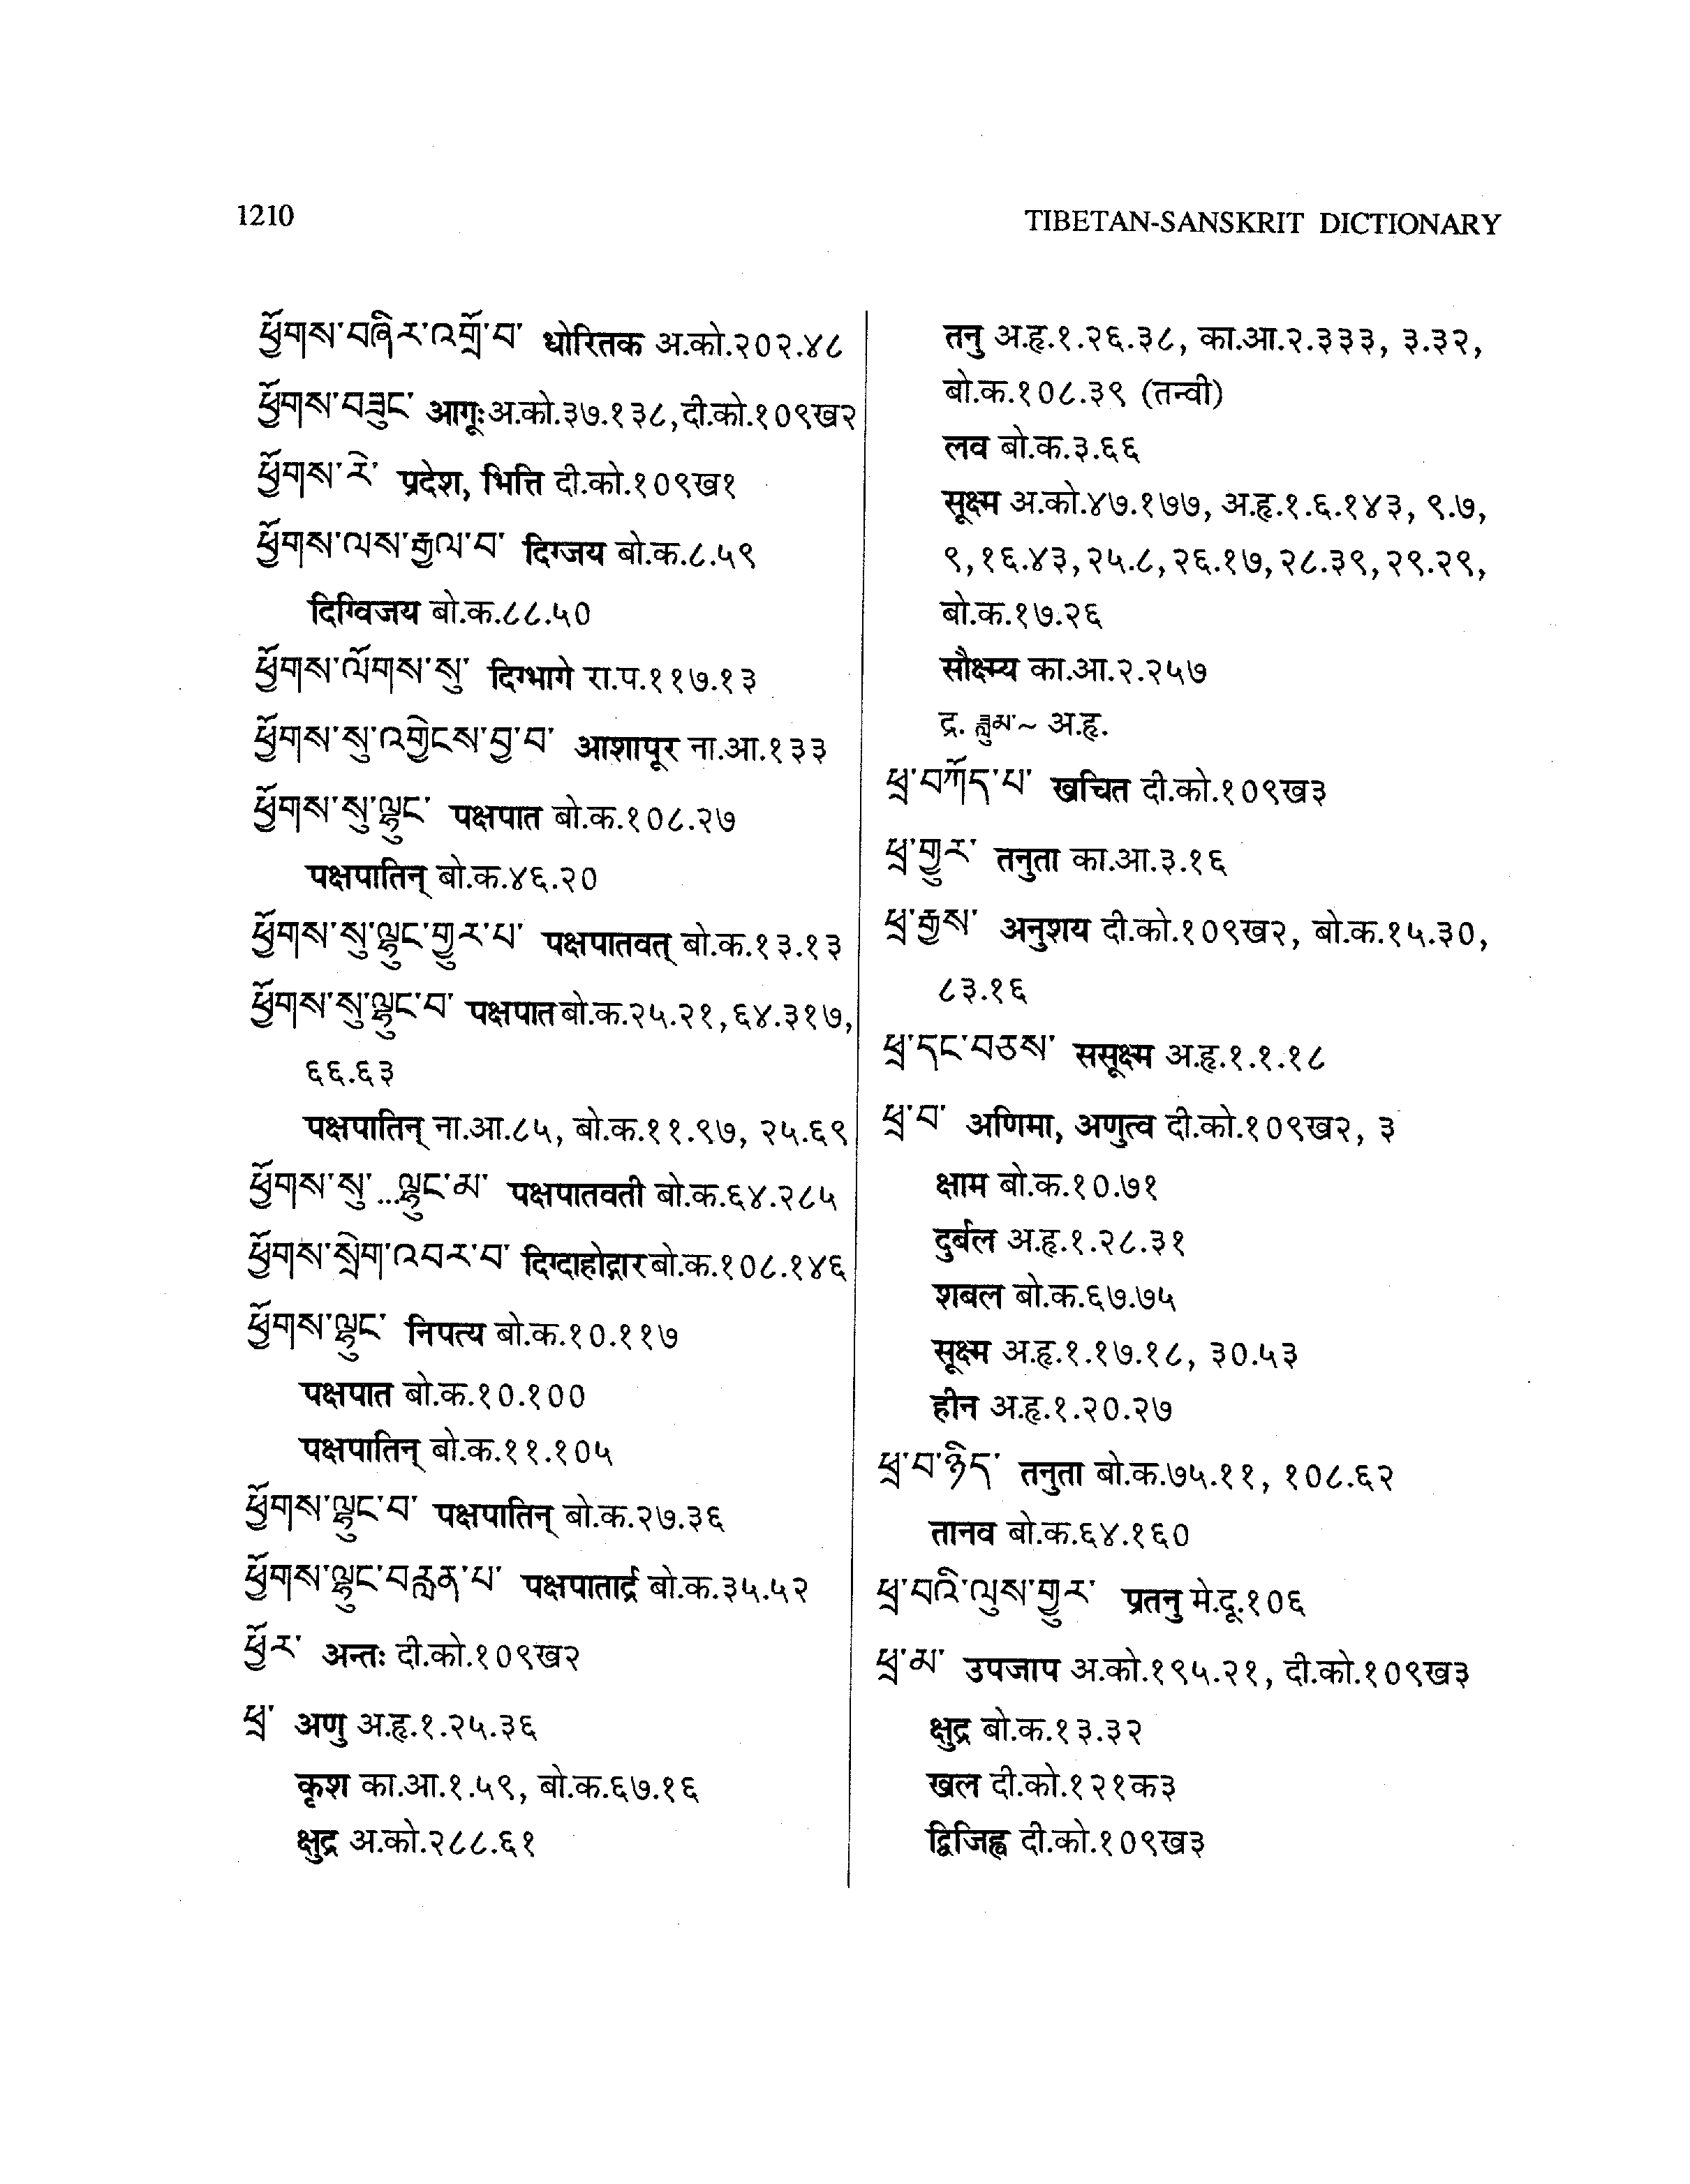 1210
TIBETAN-SANSKRIT DICTIONARY
ཕྱོགས་བཞིར་འགྲོ་བ་ धोरितक अ.को.२०२.४८
ཕྱོགས་བཟུང་ आगूः अ.को.३७.१३८, दी.को.१०९ख२
ཕྱོགས་རེ་ प्रदेश, भित्ति दी.को.१०९ख१
ཕྱོགས་ལས་རྒྱལ་བ་ दिग्जय बो.क.८.५९
दिग्विजय बो.क.८८.५०
ཕྱོགས་ལོགས་སུ་ दिग्भागे रा.प.११७.१३
ཕྱོགས་སུ་འགྱེངས་བྱ་བ་ आशापूर ना.आ.१३३
ཕྱོགས་སུ་ལྷུང་ पक्षपात बो.क.१०८.२७
पक्षपातिन् बो.क.४६.२०
ཕྱོགས་སུ་ལྷུང་གྱུར་པ་ पक्षपातवत् बो.क.१३.१३
ཕྱོགས་སུ་ལྷུང་བ་ पक्षपात बो.क.२५.२१, ६४.३१७,
६६.६३
पक्षपातिन् ना.आ.८५, बो.क.११.९७, २५.६९
ཕྱོགས་སུ་...ལྷུང་མ་ पक्षपातवती बो.क.६४.२८५
ཕྱོགས་སྲེག་འབར་བ་ दिग्दाहोद्गार बो.क.१०८.१४६
ཕྱོགས་ལྷུང་ निपत्य बो.क.१०.११७
पक्षपात बो.क.१०.१००
पक्षपातिन् बो.क.११.१०५
ཕྱོགས་ལྷུང་བ་ पक्षपातिन् बो.क.२७.३६
ཕྱོགས་ལྷུང་བརླན་པ་ पक्षपातार्द्र बो.क.३५.५२
ཕྱོར་ अन्तः दी.को.१०९ख२
ཕྲ་ अणु अ.हृ.१.२५.३६
कृश का.आ.१.५९, बो.क.६७.१६
क्षुद्र अ.को.२८८.६१
तनु अ.हृ.१.२६.३८, का.आ.२.३३३, ३.३२,
बो.क.१०८.३९ (तन्वी)
लव बो.क.३.६६
सूक्ष्म अ.को.४७.१७७, अ.हृ.१.६.१४३, ९.७,
९,१६.४३,२५.८,२६.१७,२८.३९,२९.२९,
बो.क.१७.२६
सौक्ष्म्य का.आ.२.२५७
द्र. ཟླུམ་~ अ.हृ.
ཕྲ་བཀོད་པ་ खचित दी.को.१०९ख३
ཕྲ་གྱུར་ तनुता का.आ.३.१६
ཕྲ་རྒྱས་ अनुशय दी.को.१०९ख२, बो.क.१५.३०,
८३.१६
ཕྲ་དང་བཅས་ ससूक्ष्म अ.हृ.१.१.१८
ཕྲ་བ་ अणिमा, अणुत्व दी.को.१०९ख२, ३
क्षाम बो.क.१०.७१
दुर्बल अ.हृ.१.२८.३१
शबल बो.क.६७.७५
सूक्ष्म अ.हृ.१.१७.१८, ३०.५३
हीन अ.हृ.१.२०.२७
ཕྲ་བ་ཉིད་ तनुता बो.क.७५.११, १०८.६२
तानव बो.क.६४.१६०
ཕྲ་བའི་ལུས་གྱུར་ प्रतनु मे.दू.१०६
ཕྲ་མ་ उपजाप अ.को.१९५.२१, दी.को.१०९ख३
क्षुद्र बो.क.१३.३२
खल दी.को.१२१क३
द्विजिह्व दी.को.१०९ख३